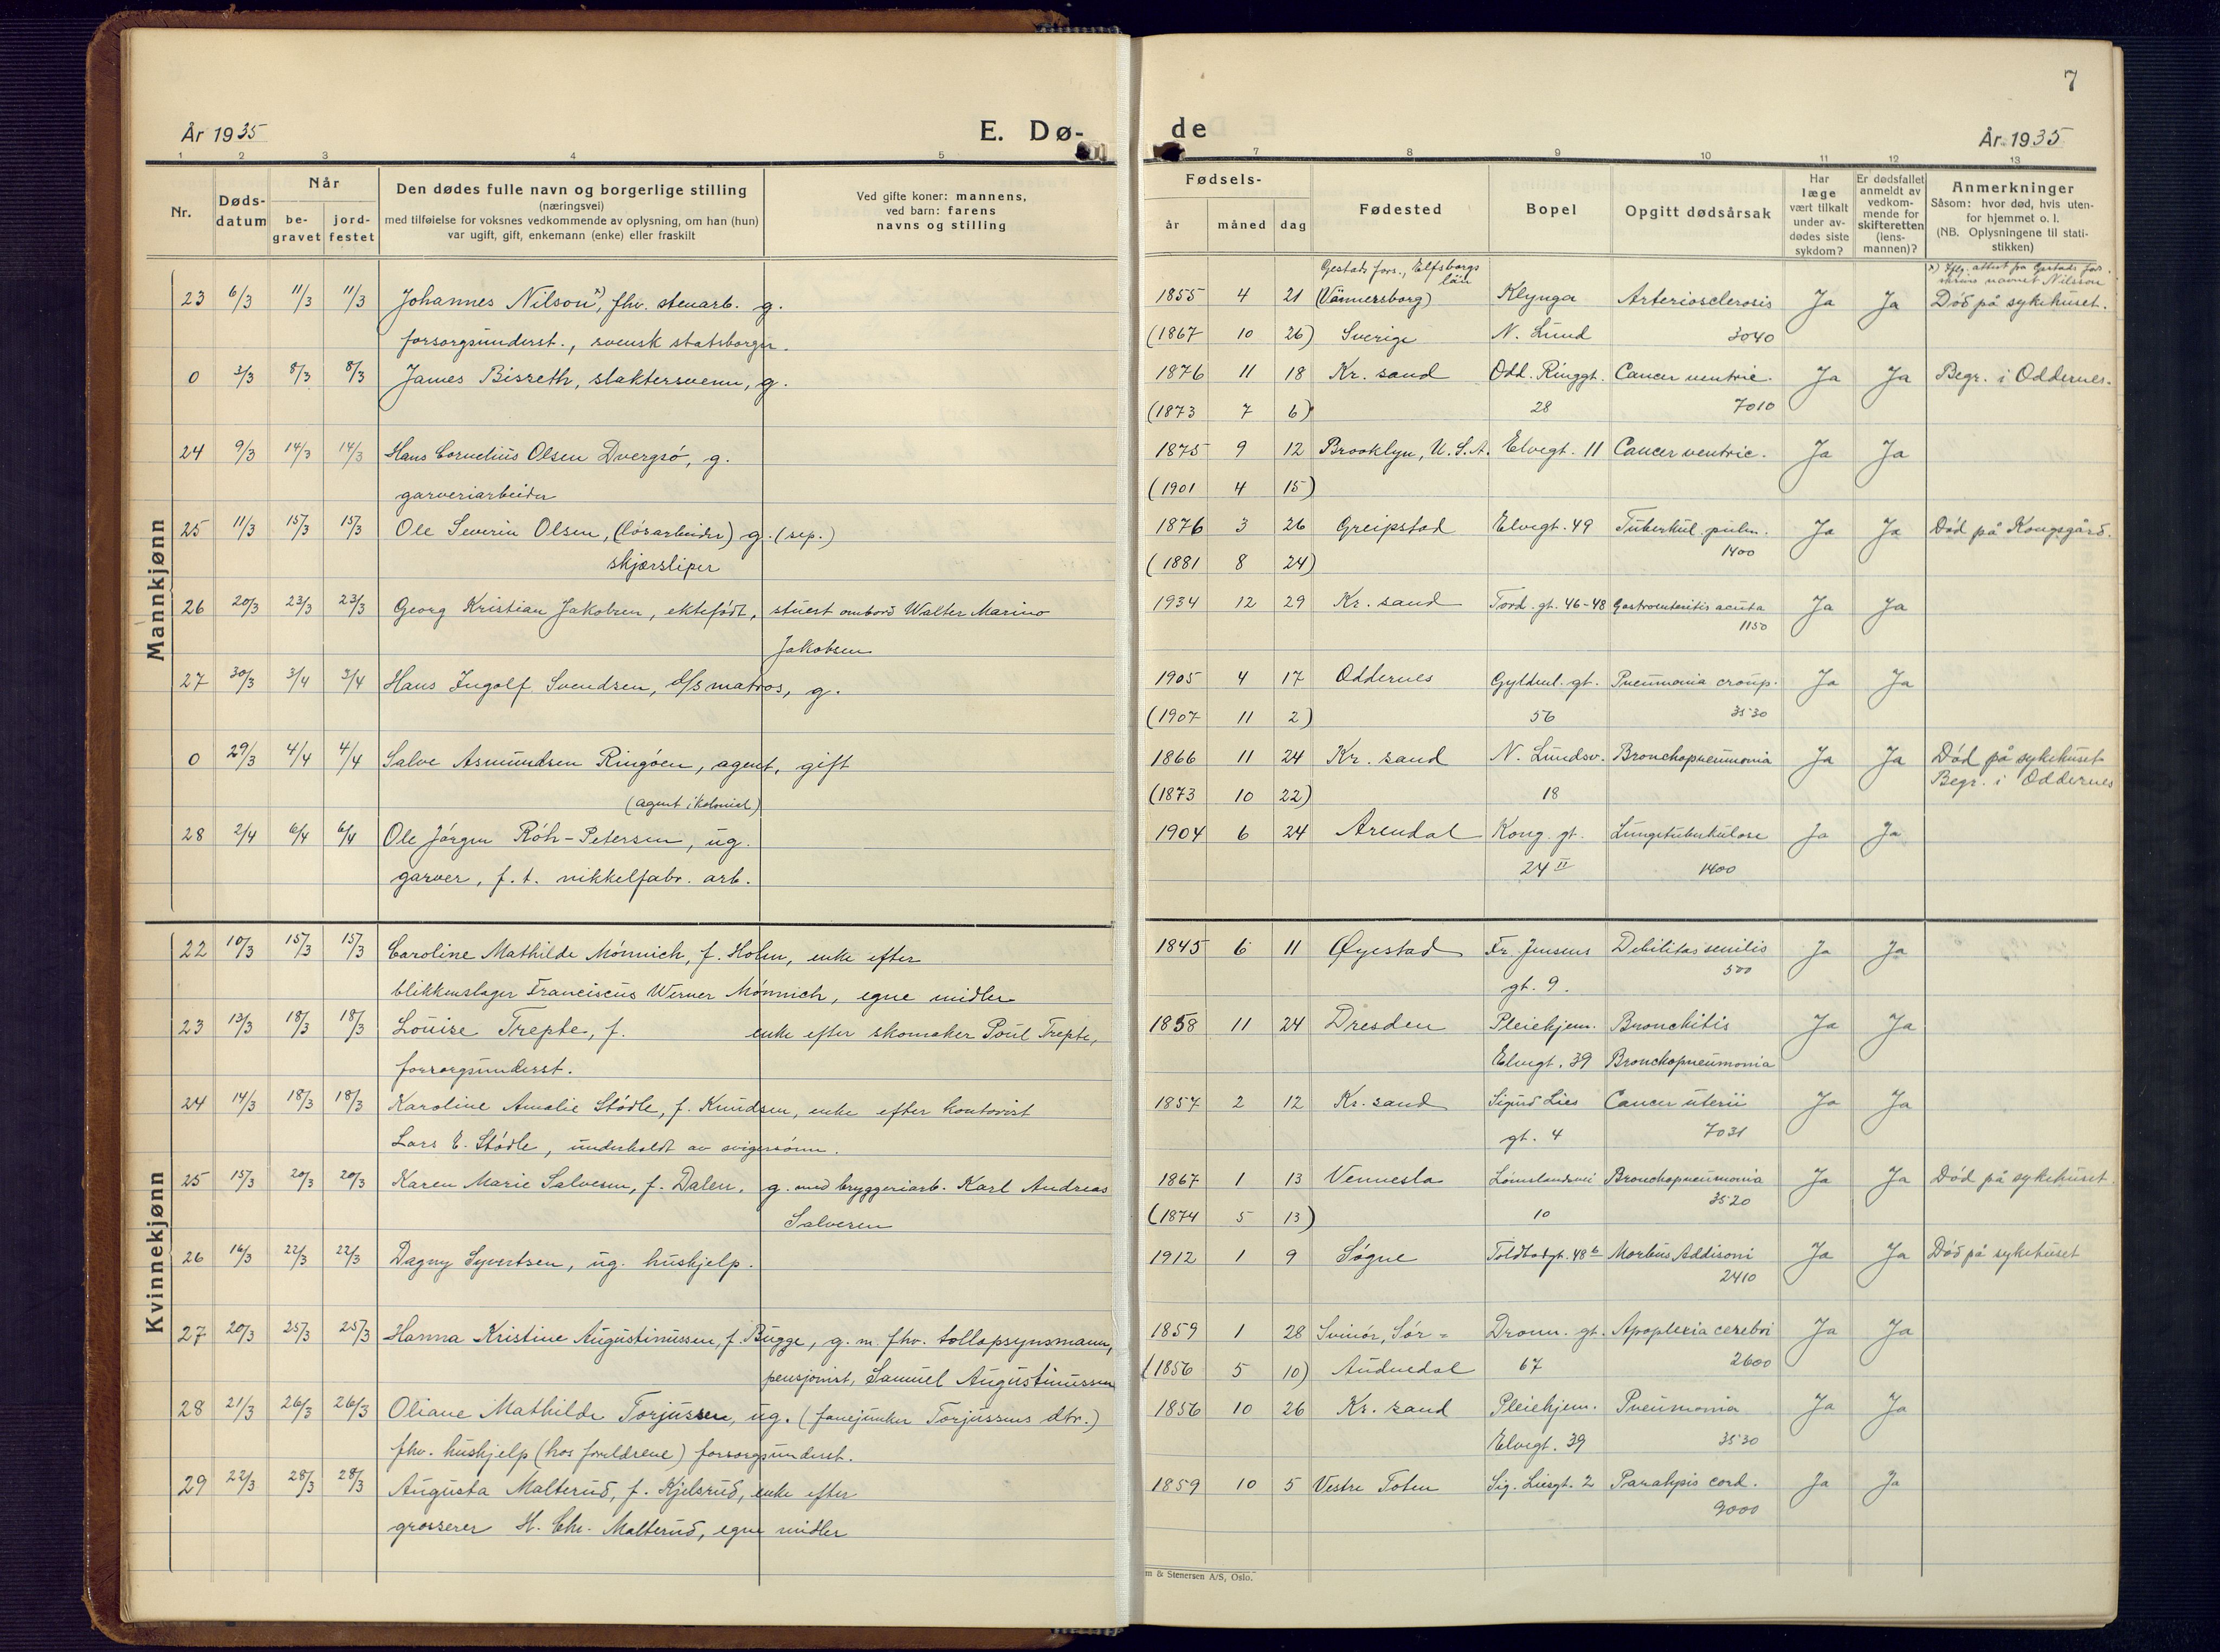 7
År 1935
E. Dø-
de
År 1935
1 2 3 4 5
7 8 9 10 11 12 13
Nr.
Døds-
datum
Når
be-
gravet
jord-
festet
Den dødes fulle navn og borgerlige stilling
(næringsvei)
med tilføielse for voksnes vedkommende av oplysning, om han (hun)
var ugift, gift, enkemann (enke) eller fraskilt
Ved gifte koner: mannens,
ved barn: farens
navns og stilling
Fødsels-
år måned dag
Fødested
Bopel
Opgitt dødsårsak
Har
læge
vært tilkalt
under av-
dødes siste
sykdom?
Er dødsfallet
anmeldt av
vedkom-
mende for
skifteretten
(lens-
mannen)?
Anmerkninger
Såsom: hvor død, hvis uten-
for hjemmet o. l.
(NB. Oplysningene til stati-
stikken)
Mannkjønn
Gestads fors., Elfsborgs
län
23 6/3 11/3 11/3 Johannes Nilson x), fhv. stenarb. g. 1855 4 21 (Vännersborg) Klynga Arteriosclerosis Ja Ja Død på sykehuset.
forsorgsunderst., svensk statsborger. (1867 10 26) Sverige N. Lund 3040
0 3/3 8/3 8/3 James Bisseth, slaktersvenn, g. 1876 11 18 Kr. sand Odd. Ringgt. Cancer ventric. Ja Ja Begr. i Oddernes.
(1873 7 6) 28 7010
24 9/3 14/3 14/3 Hans Cornelius Olsen Dvergsö, g. 1875 9 12 Brooklyn, U.S.A. Elvegt. 11 Cancer ventric. Ja Ja
garveriarbeider (1901 4 15)
25 11/3 15/3 15/3 Ole Severin Olsen, (lösarbeider) g. (sep.) 1876 3 26 Greipstad Elvegt. 49 Tuberkul. pulm. Ja Ja Död på Kongsgård.
1400
skjærsliper (1881 8 24)
26 20/3 23/3 23/3 Georg Kristian Jakobsen, ektefödt, stuert ombord Walter Marino 1934 12 29 Kr. sand Tord. gt. 46-48 Gastroenteritis acuta Ja Ja
1150
Jakobsen
27 30/3 3/4 3/4 Hans Ingolf Svendsen, d/s matros, g. 1905 4 17 Oddernes Gyldenl. gt. Pneumonia croup. Ja Ja
(1907 11 2) 56 3530
0 29/3 4/4 4/4 Salve Asmundsen Ringöen, agent, gift 1866 11 24 Kr. sand N. Lundsv. Bronchopneumonia Ja Ja Död på sykehuset
Begr. i Oddernes
(agent i kolonial) (1873 10 22) 18
28 2/4 6/4 6/4 Ole Jörgen Röh-Petersen, ug. 1904 6 24 Arendal Kong. gt. Lungetuberkulose Ja Ja
garver, f. t. nikkelfabr. arb. 24 II 1400
Kvinnekjønn
22 10/3 15/3 15/3 Caroline Mathilde Mönnich, f. Holm, enke efter 1845 6 11 Øyestad Fr. Jensens Debilitas senilis Ja Ja
500
blikkenslager Franciscus Werner Mönnich, egne midler gt. 9.
23 13/3 18/3 18/3 Louise Trepte, f. enke efter skomaker Poul Trepte, 1858 11 24 Dresden Pleiehjem. Bronchitis Ja Ja
forsorgsunderst. Elvegt. 39 Bronchopneumonia
24 14/3 18/3 18/3 Karoline Amalie Stödle, f. Knudsen, enke efter kontorist 1857 2 12 Kr. sand Sigurd Lies Cancer uterii Ja Ja
Lars E. Stödle, underholdt av svigersönn. gt. 4 7031
25 15/3 20/3 20/3 Karen Marie Salvesen, f. Dalen, g. med bryggeriarb. Karl Andreas 1867 1 13 Vennesla Lömslandsvei Bronchopneumonia Ja Ja Död på sykehuset.
Salvesen (1874 5 13) 10 3520
26 16/3 22/3 22/3 Dagny Syvertsen, ug. hushjelp. 1912 1 9 Søgne Toldbodgt. 48 b Morbus Addisoni Ja Ja Död på sykehuset
2410
27 20/3 25/3 25/3 Hanna Kristine Augustinussen, f. Bugge, g. m. fhv. tollopsynsmann, 1859 1 28 Svinör, Sör= Dronn. gt. Apoplexia cerebri Ja Ja
pensjonist, Samuel Augustinussen (1856 5 10) Audnedal 67 2600
28 21/3 26/3 26/3 Oliane Mathilde Torjussen, ug. (fanejunker Torjussens dtr.) 1856 10 26 Kr. sand Pleiehjem. Pneumonia Ja Ja
fhv. hushjelp (hos foreldrene) forsorgsunderst. Elvegt. 39 3530
29 22/3 28/3 28/3 Augusta Malterud, f. Kjelsrud, enke efter 1859 10 5 Vestre Toten Sig. Liesgt. 2 Paralysis cord. Ja Ja
9000
grosserer H. Chr. Malterud, egne midler
m & Stenersen A/S, Oslo.